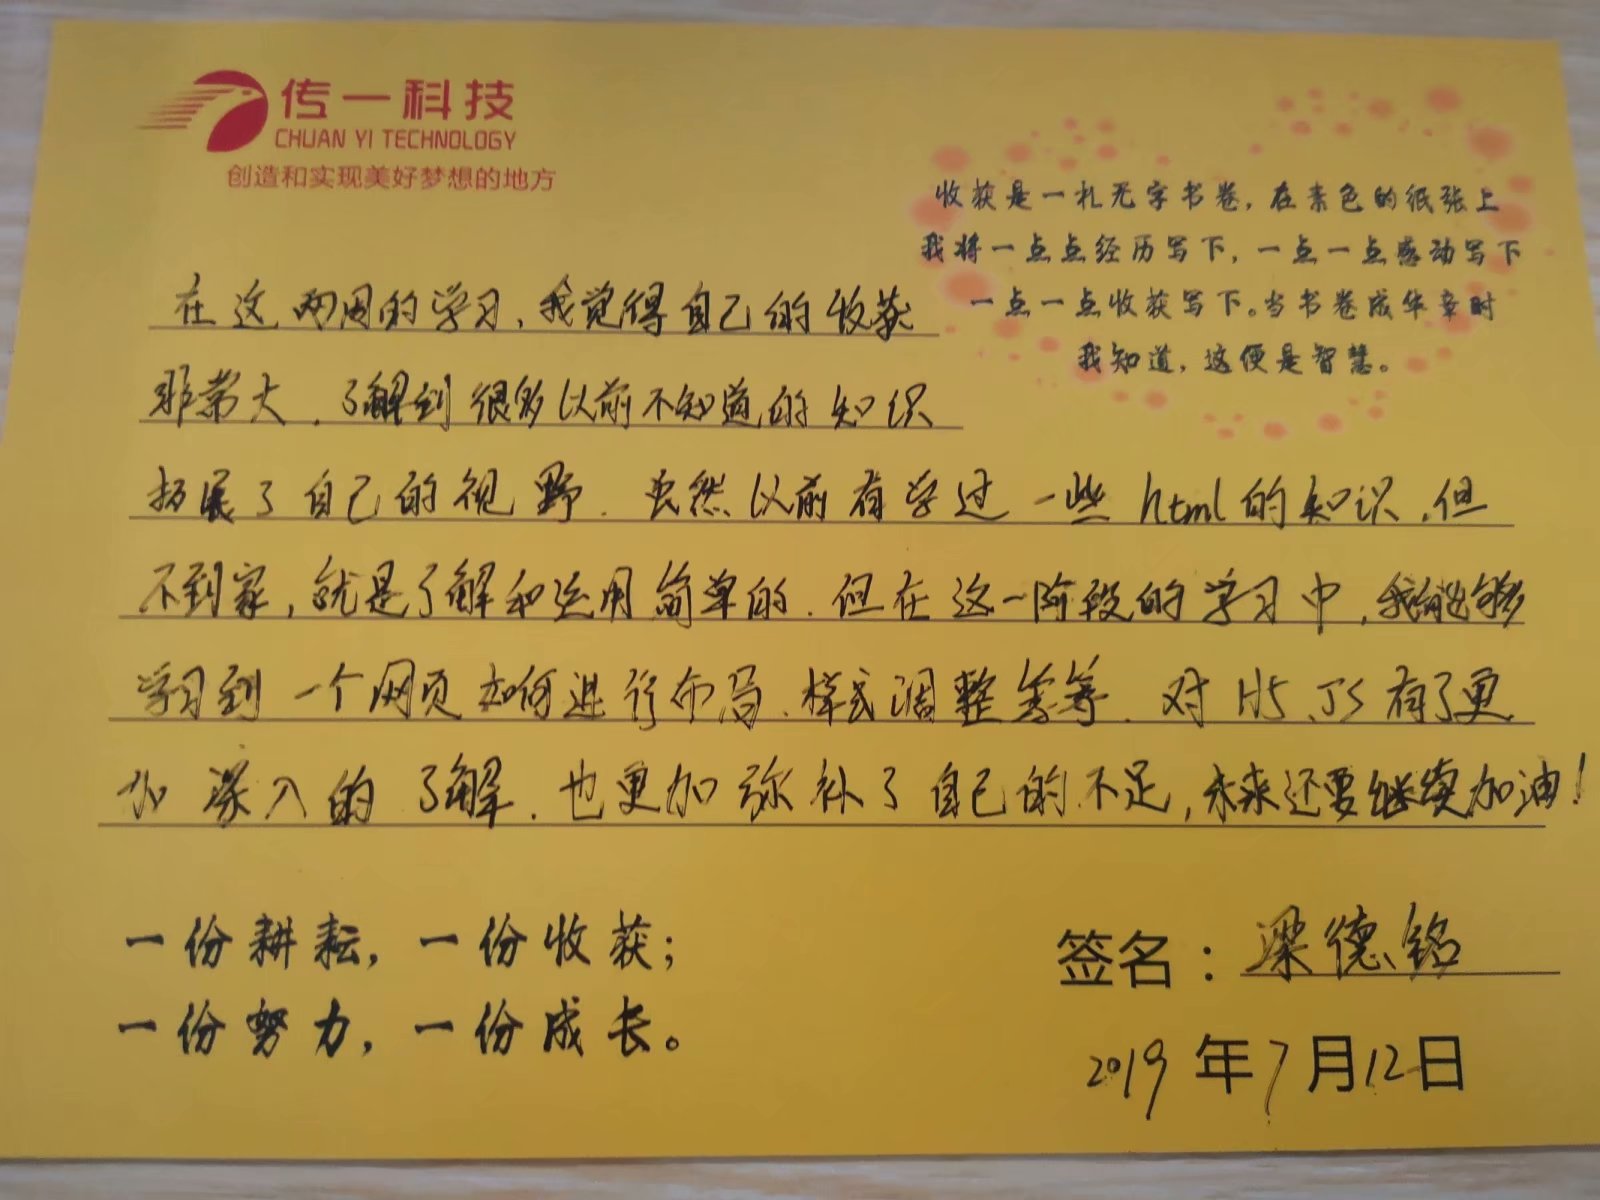 传一科技
CHUAN YI TECHNOLOGY
创造和实现美好梦想的地方
收获是一札无字书卷，在素色的纸张上
我将一点点经历写下，一点一点感动写下
一点一点收获写下。当书卷成华章时
我知道，这便是智慧。
在这两周的学习，我觉得自己的收获
非常大，了解到很多以前不知道的知识
拓展了自己的视野．虽然以前有学过一些html的知识，但
不到家，就是了解和运用简单的．但在这一阶段的学习中，我能够
学习到一个网页如何进行布局、样式调整等等．对H5、JS有了更
加深入的了解．也更加弥补了自己的不足，未来还要继续加油！
一份耕耘，一份收获；
一份努力，一份成长。
签名：梁德铭
2019年7月12日